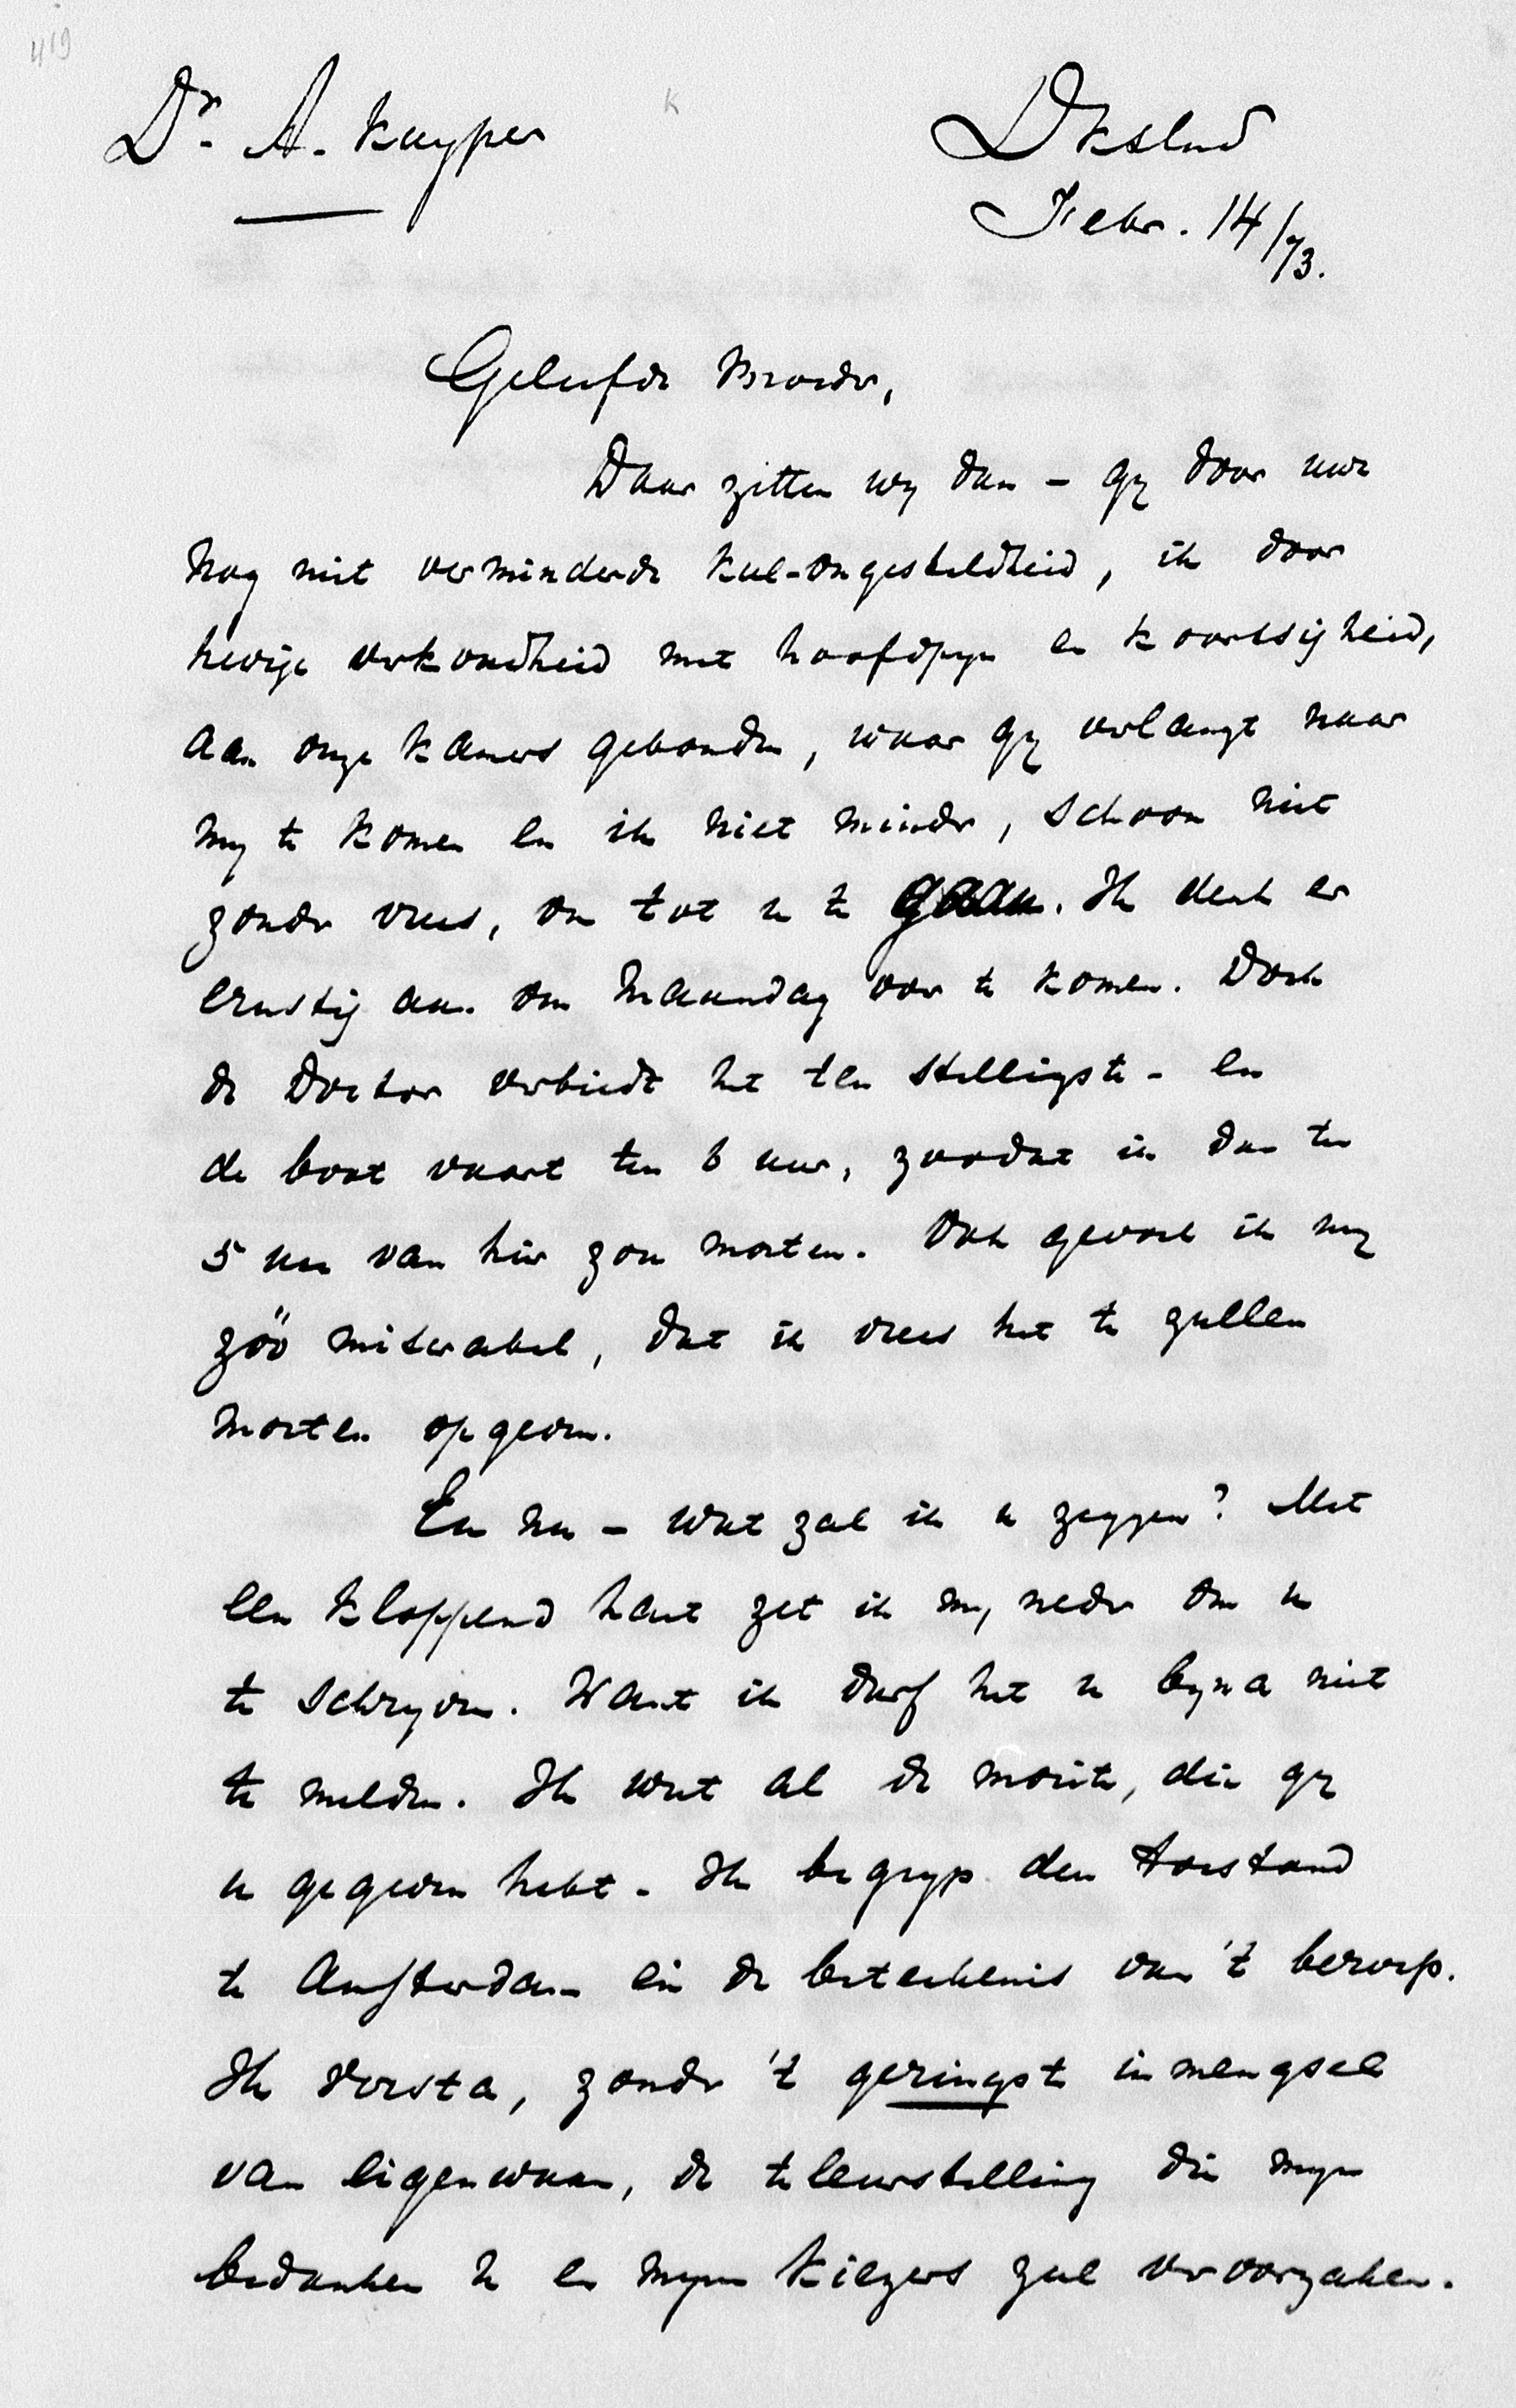 419
Dr. A. Kuyper
K
Dksland
Febr. 14/73.
Geliefde Broeder,
Daar zitten wy dan – gy door uwe
nog niet verminderde keel-ongesteldheid, ik door
hevige verkoudheid met hoofdpyn en koortsigheid,
aan onze kamers gebonden, waar gy verlangt naar
my te komen en ik niet minder, schoon niet
zonder vrees, om tot u te gaan. Ik denk er
ernstig aan om Maandag over te komen. Doch
de Doctor verbiedt het ten stelligste – en
de boot vaart ten 6 uur, zoodat ik dan ten
5 uur van hier zou moeten. Ook gevoel ik my
zóó miserabel, dat ik vrees het te zullen
moeten opgeven.
En nu – wat zal ik u zeggen? Met
een kloppend hart zet ik my neder om u
te schryven. Want ik durf het u byna niet
te melden. Ik weet al de moeite, die gy
u gegeven hebt. Ik begryp den toestand
te Amsterdam en de beteekenis van 't beroep.
Ik versta, zonder 't geringste inmengsel
van eigenwaan, de teleurstelling die myn
bedanken u en myne kiezers zal veroorzaken.